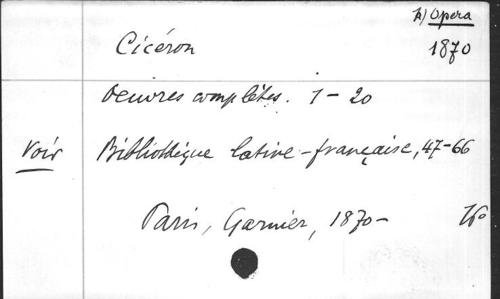 A) Opera
Cicéron 1870
Oeuvres complètes. 1-20
Voir Bibliothèque latine-française, 47-66
Paris, Garnier, 1870-